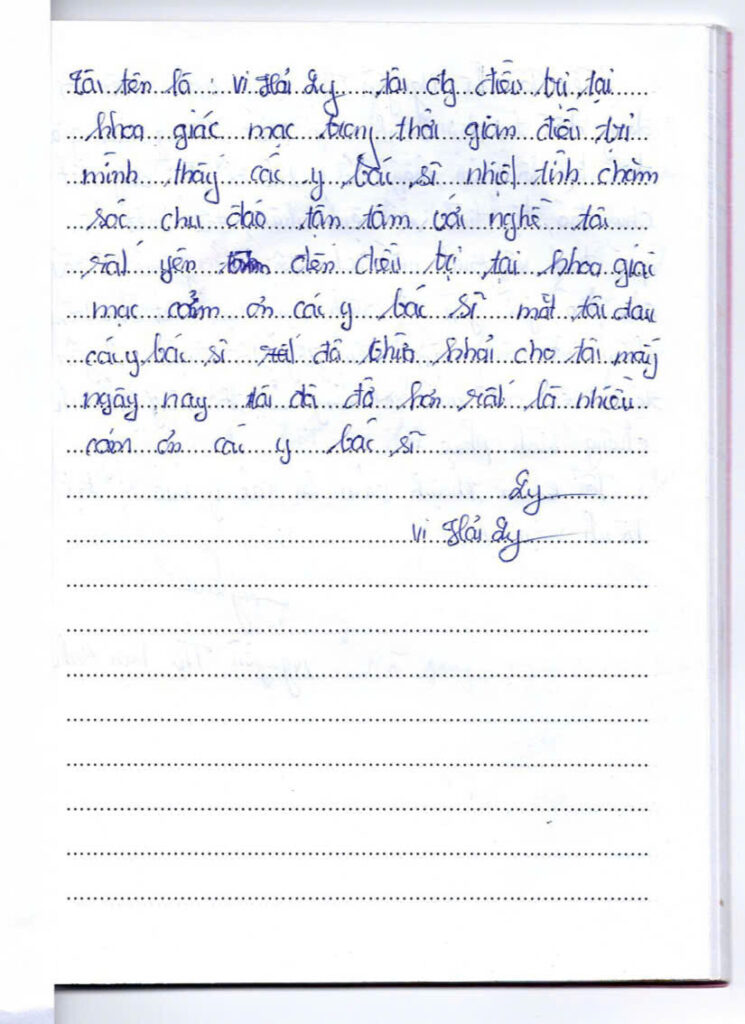 Tôi tên là : Vi Hải Ly tôi đg điều trị tại
khoa giác mạc trong thời giam điều trị
mình thấy các y bác sĩ nhiệt tình chăm
sóc chu đáo tận tâm với nghề tôi
rất yên tâm đến điều trị tại khoa giác
mạc cảm ơn các y bác sĩ mắt tôi đau
các y bác sĩ rất đã chữa khỏi cho tôi mấy
ngày nay tôi đã đỡ hơn rất là nhiều
cảm ơn các y bác sĩ
Ly
Vi Hải Ly